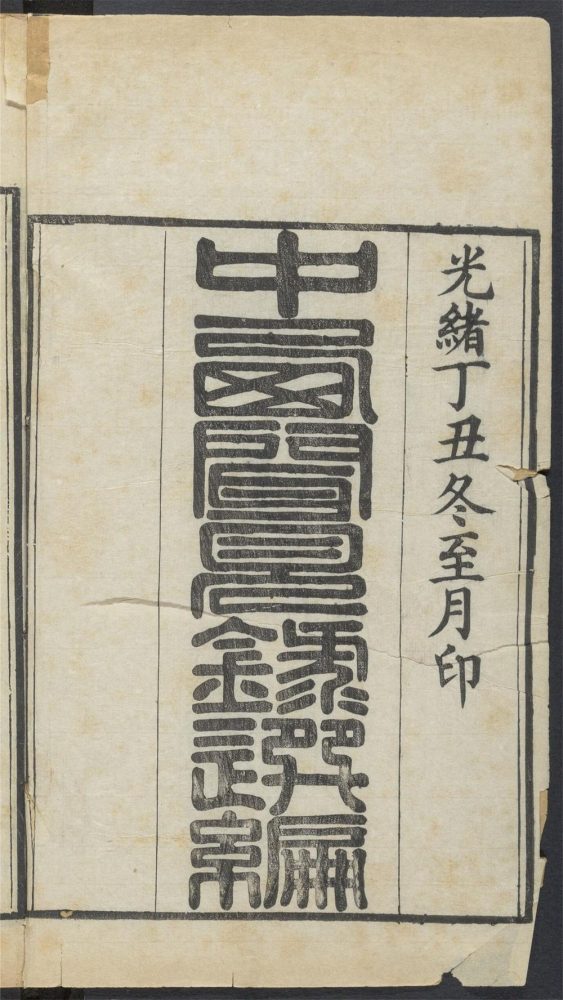 光緒丁丑冬至月印
中西聞見錄選編